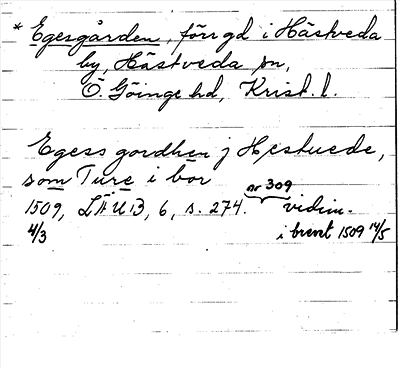 * Egesgården, förr gd i Hästveda
by, Hästveda sn,
Ö. Göinge hd, Krist. l.
Egess gordhen j Hestuede,
som Ture i bor
nr 309
1509, LÄUB, 6, s. 274. vidim.
4/3 i brevt 1509 14/5